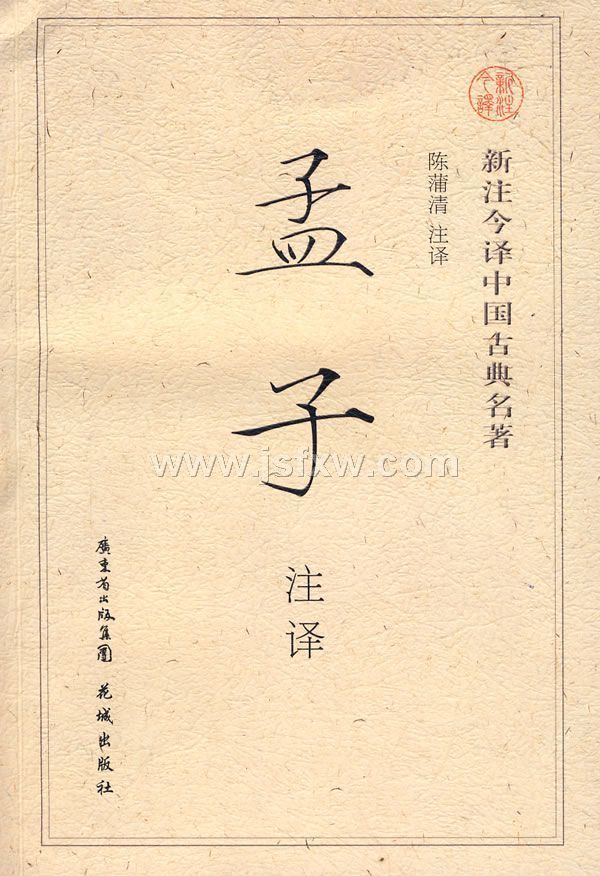 新注今译
新注今译中国古典名著
陈蒲清 注译
孟子
注译
廣東省出版集團 花城出版社
www.jsfxw.com